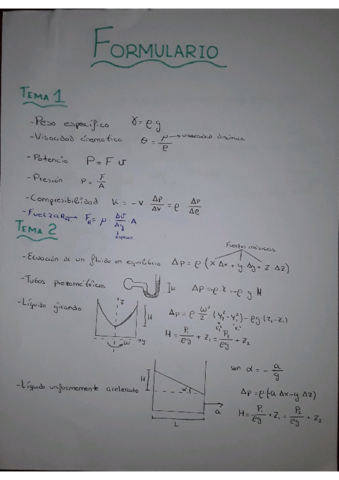 FORMULARIO
TEMA 1
- Peso específico γ = ρ g
- Viscosidad cinemática θ = μ/ρ → viscosidad dinámica
- Potencia P = F v
- Presión P = F/A
- Compresibilidad K = -V Δp/Δv = ρ Δp/Δρ
- Fuerza Roz. F = μ Δv/Δy A
TEMA 2
Fuerzas másicas
- Ecuación de un fluido en equilibrio Δp = ρ (X Δx + Y Δy + Z ΔZ)
- Tubos piezométricos H Δp = -ρ g H
- Líquido girando Z H y ω Δp = ρ ω²/2 (r₂² - r₁²) - ρg (Z₂ - Z₁)
H = P₁/ρg + Z₁ = P₂/ρg + Z₂
- Líquido uniformemente acelerado H α L a
sen α = - a/g
H = P₁/ρg + Z₁ = P₂/ρg + Z₂